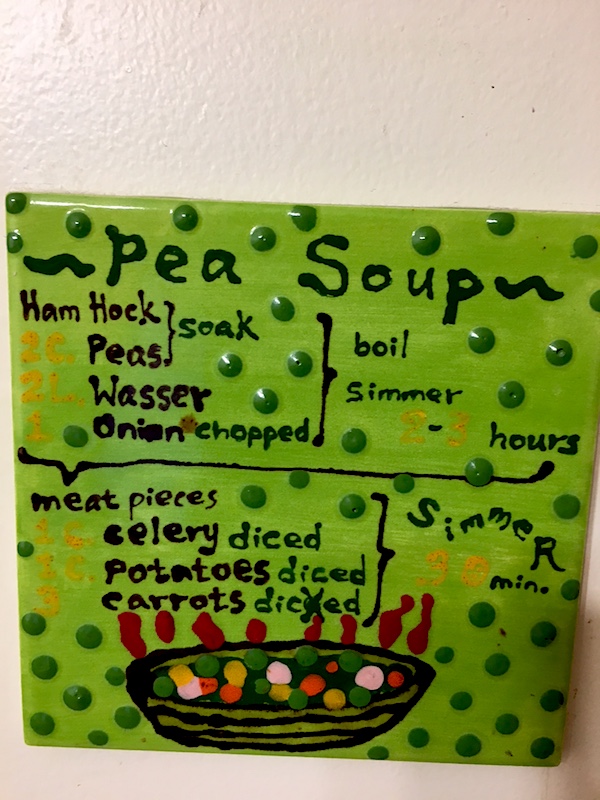 ~Pea Soup~
Ham Hock } soak
2C. Peas
2L. Wasser
1 Onion chopped
boil
simmer
2-3 hours
meat pieces
C. celery diced
C. potatoes diced
carrots dicxed
SimmeR
30 min.